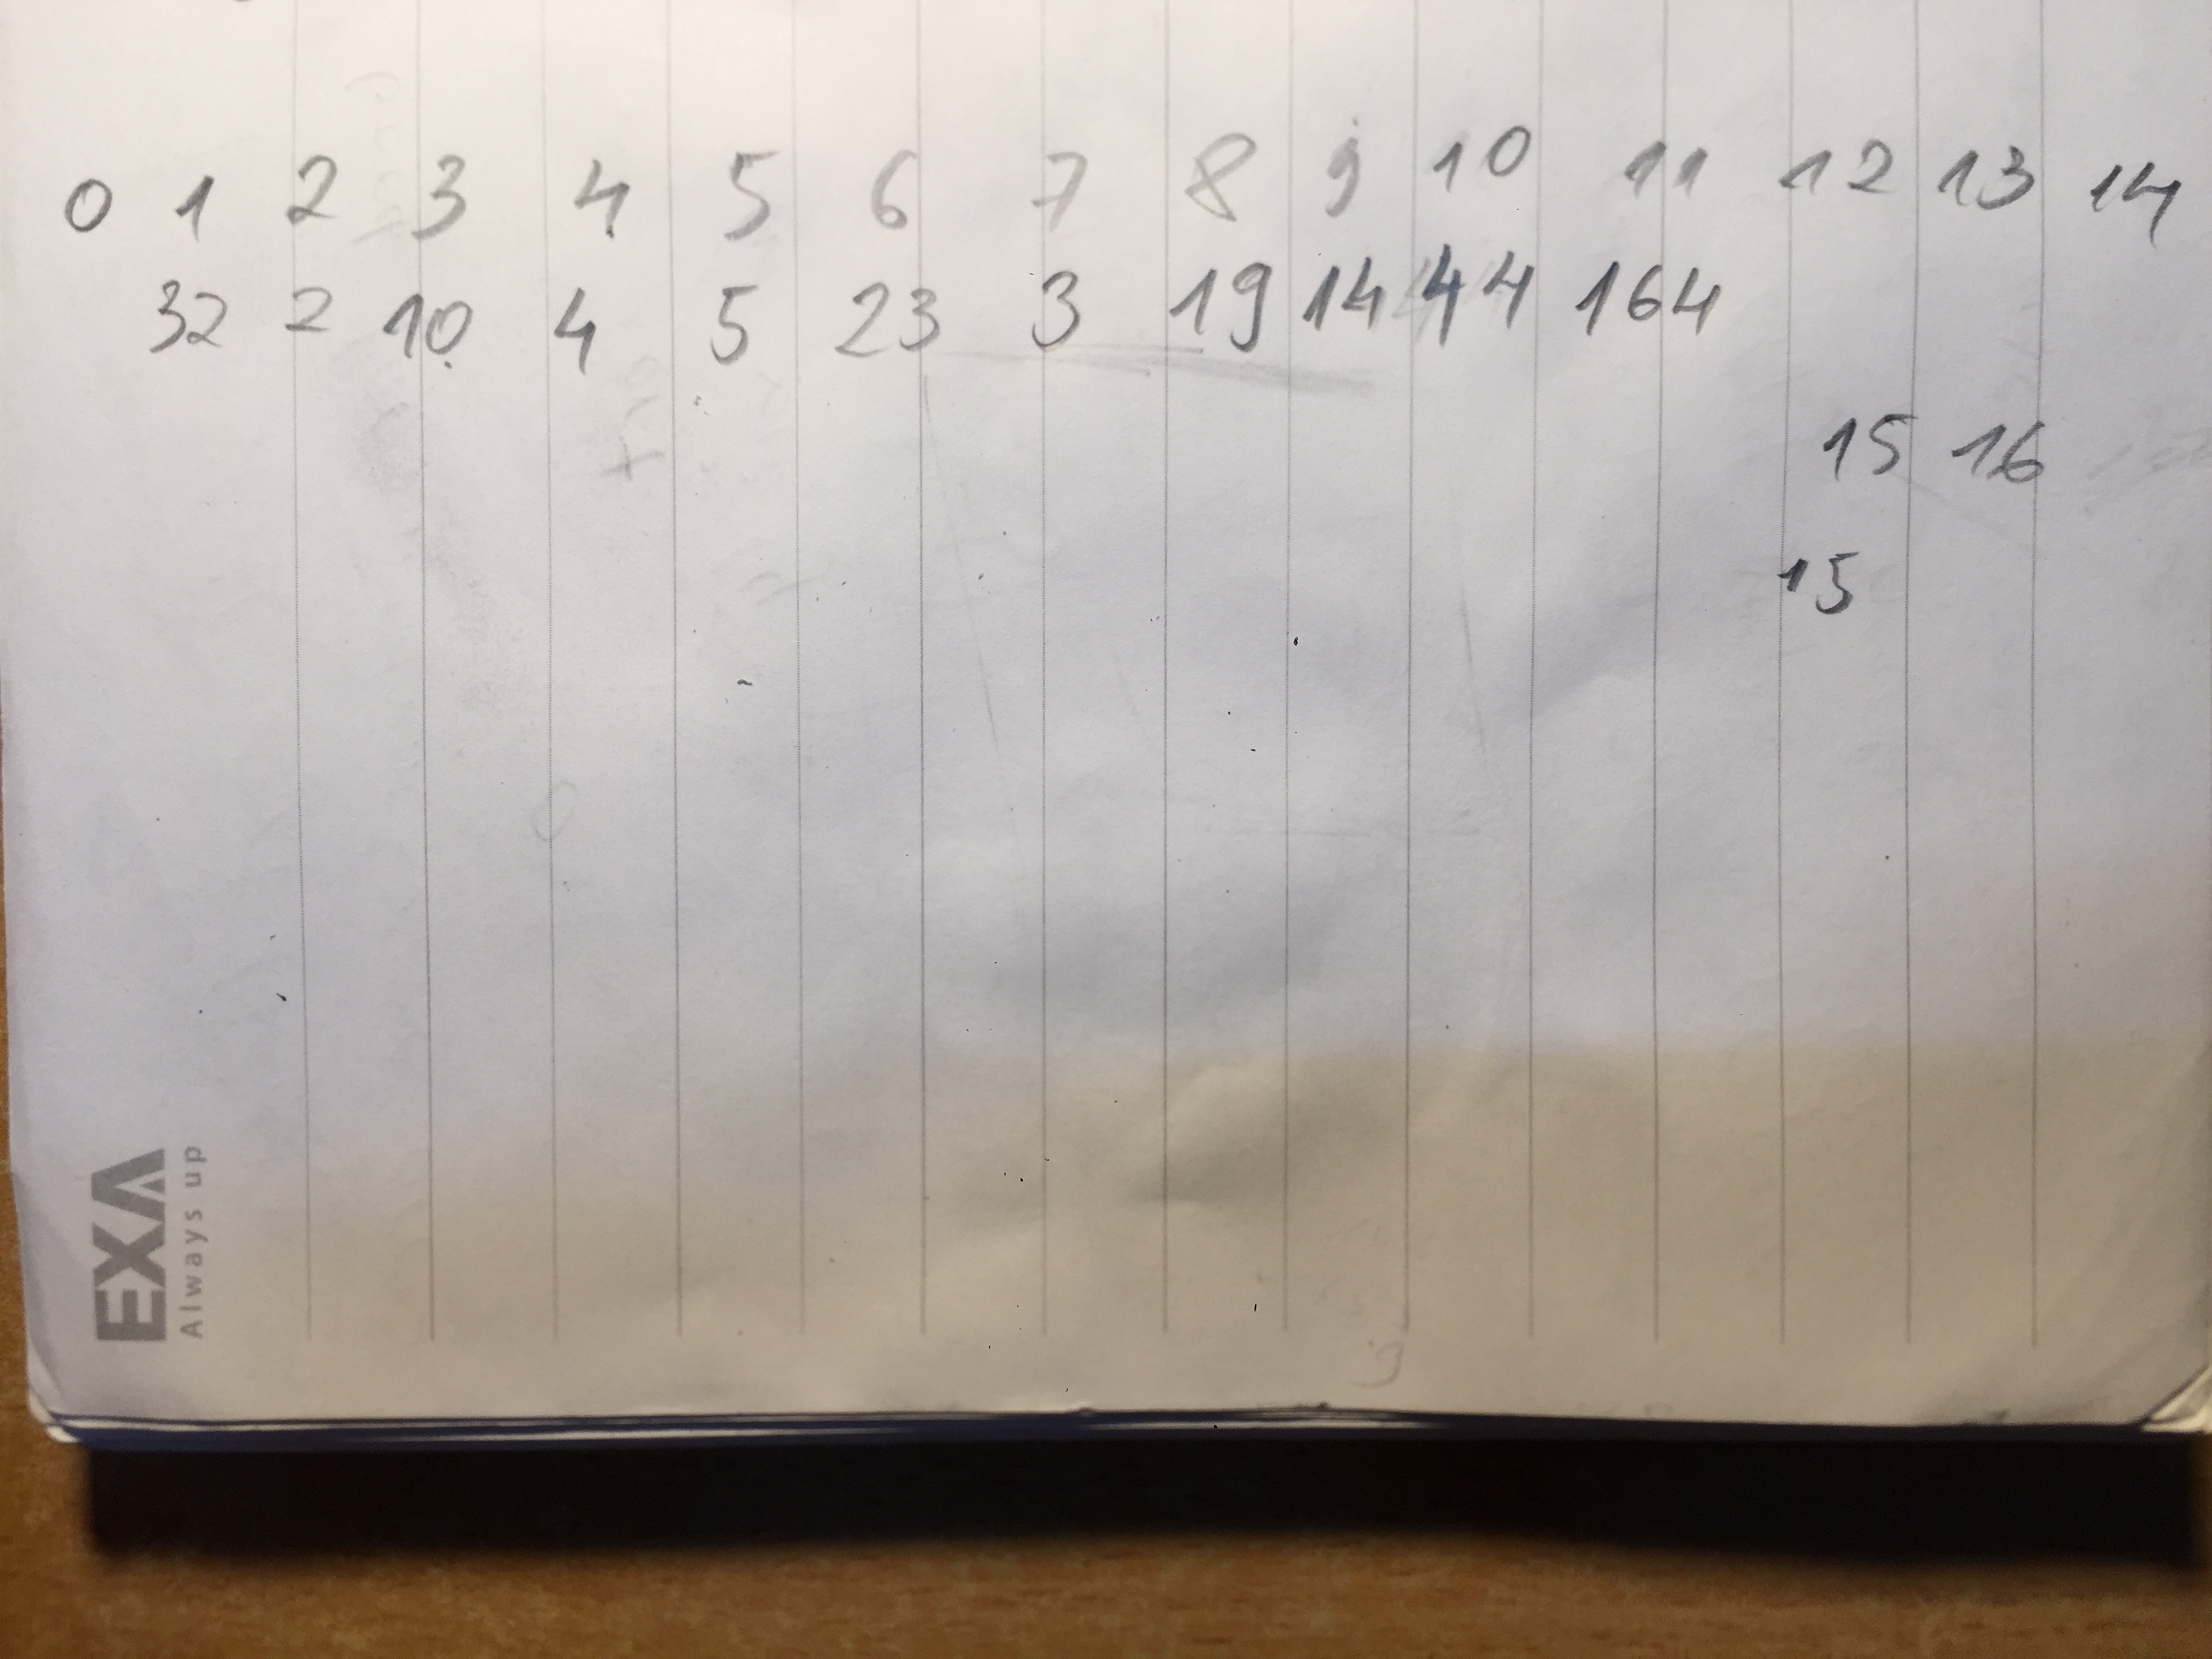 EXA
Always up
0 1 2 3 4 5 6 7 8 9 10 11 12 13 14
32 2 10 4 5 23 3 19 14 4 4 164
15 16
15